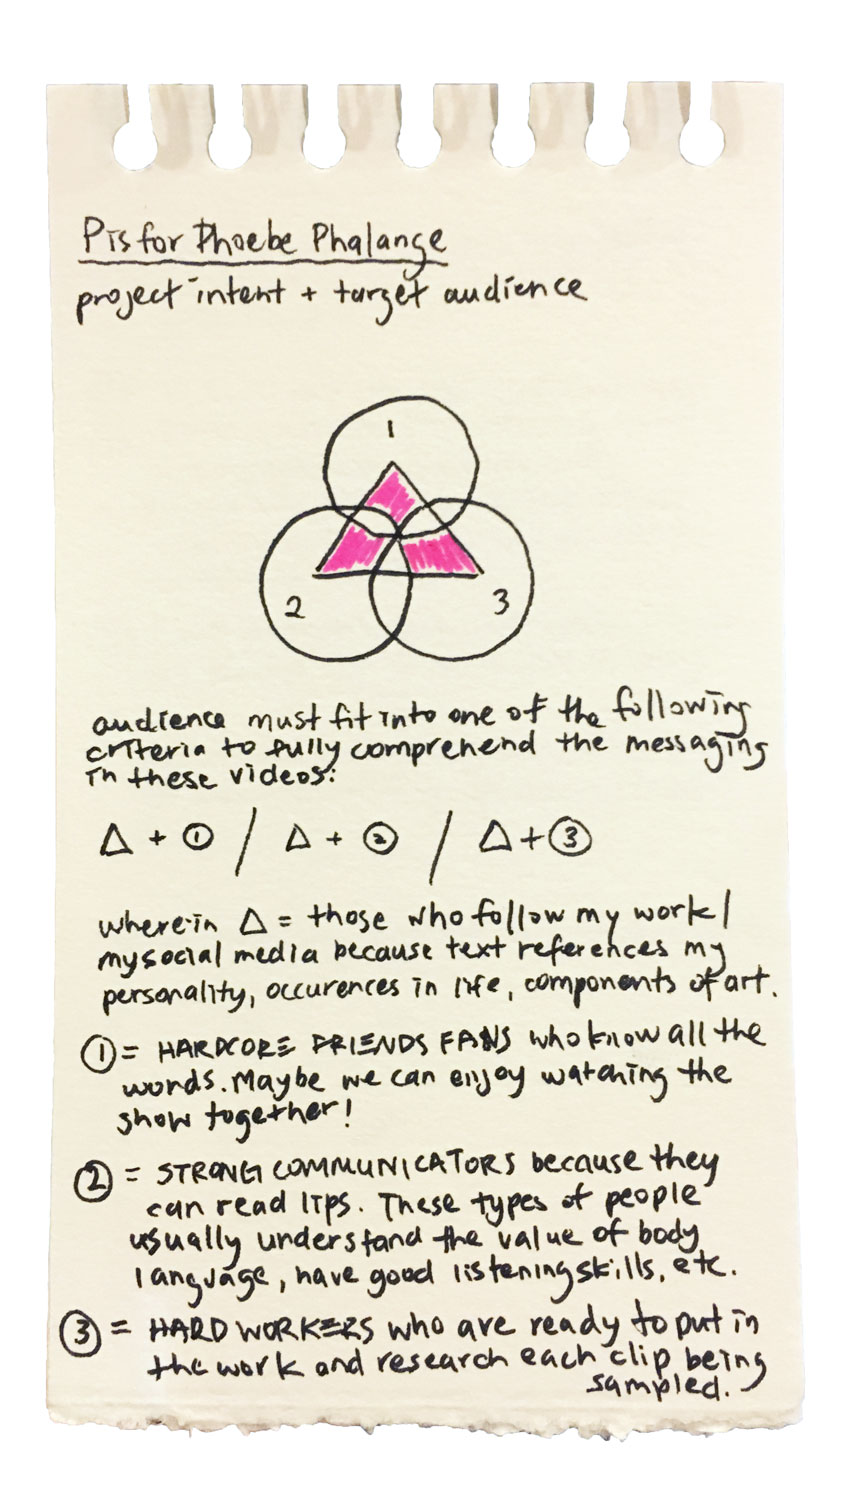 P is for Phoebe Phalange
project intent + target audience
1
2
3
audience must fit into one of the following
criteria to fully comprehend the messaging
in these videos:
Δ + ① / Δ + ② / Δ + ③
wherein Δ = those who follow my work/
my social media because text references my
personality, occurences in life, components of art.
① = HARDCORE FRIENDS FANS who know all the
words. Maybe we can enjoy watching the
show together!
② = STRONG COMMUNICATORS because they
can read lips. These types of people
usually understand the value of body
language, have good listening skills, etc.
③ = HARD WORKERS who are ready to put in
the work and research each clip being
sampled.